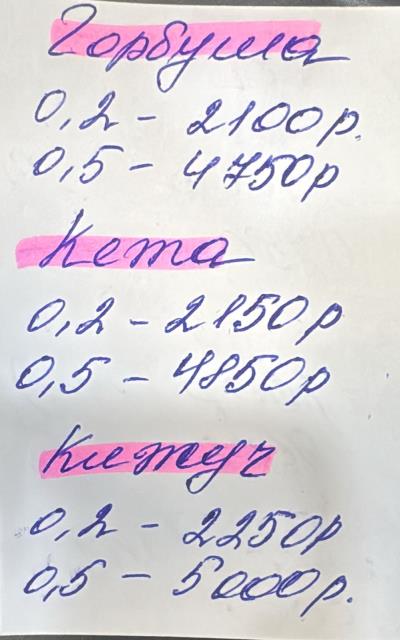 Горбуша
0,2 - 2100р.
0,5 - 4750р
Кета
0,2 - 2150р
0,5 - 4850р
Кижуч
0,2 - 2250р
0,5 - 5000р.